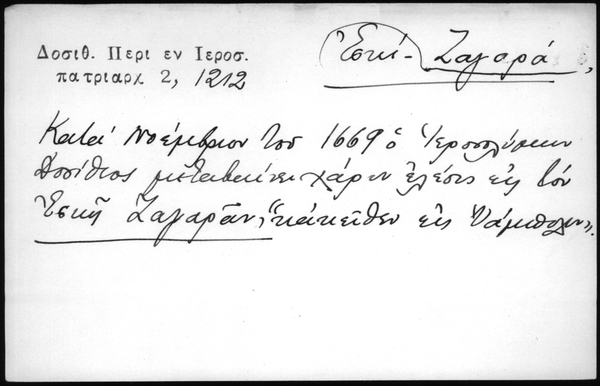 Δοσιθ. Περι εν Ιεροσ.
πατριαρχ 2, 1212
Ἐσκί-Ζαγαρά,
Κατά Νοέμβριον του 1669 ὁ Ἱεροσολύμων
Δοσίθεος μεταβαίνει χάριν ἐλέους εἰς τόν
Ἐσκῆ Ζαγαρᾶν, "κἀκεῖθεν εἰς Ὑάμπολιν".